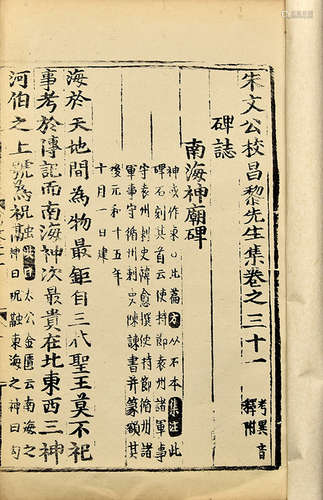 朱文公校昌黎先生集卷之三十一 考異音釋附
碑誌
南海神廟碑
神或作東○此篇方从石本集註此
碑石刻其首云使持節袁州諸軍事
守袁州刺史韓愈撰使持節循州諸
軍事守循州刺史陳諫書并篆額其
後元和十五年
十月一日建
海於天地間為物最鉅自三代聖王莫不祀
事考於傳記而南海神次最貴在北東西三神
河伯之上號為祝融 太公金匱云南海之
神曰祝融東海之神曰勾